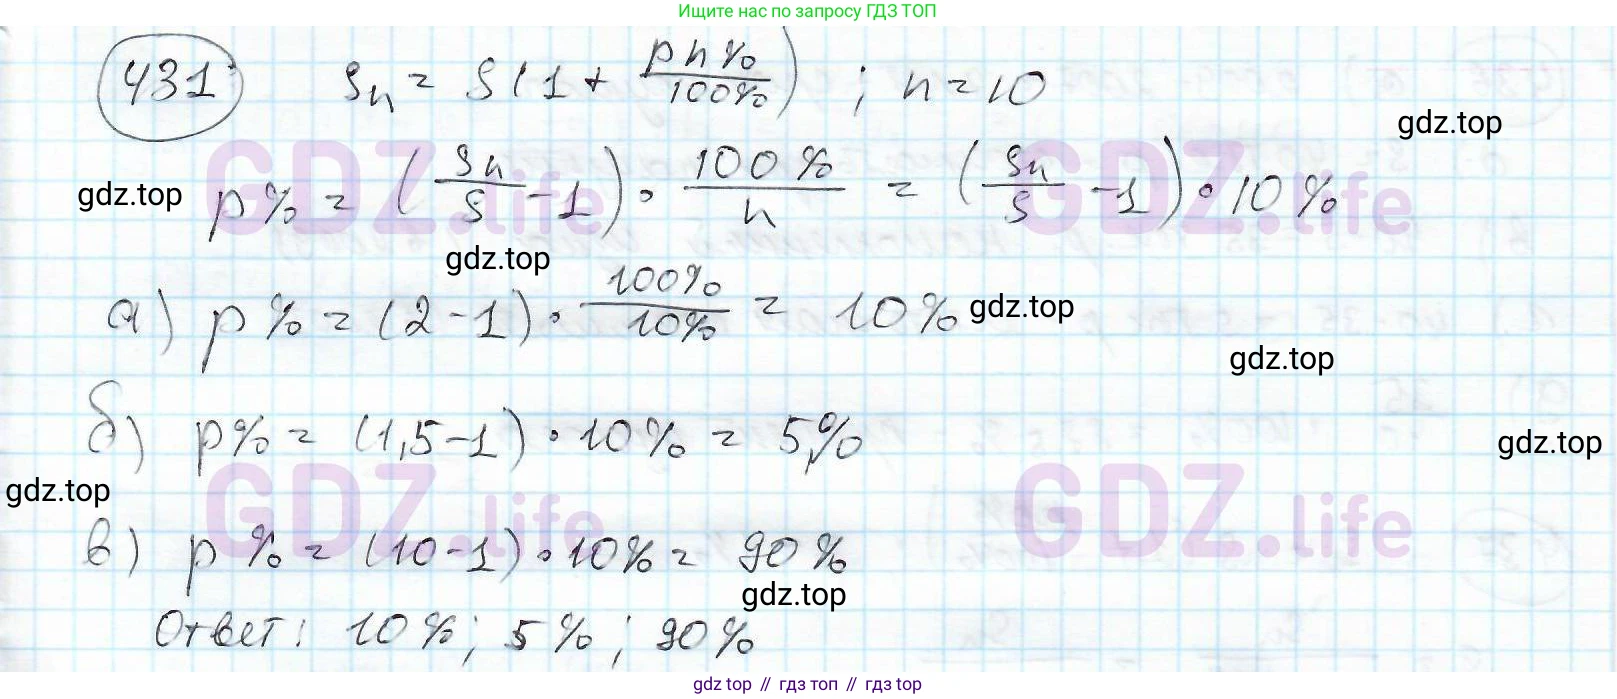 Ищите нас по запросу ГДЗ ТОП
431 Sn = S(1 + pn%/100%) ; n = 10
gdz.top
GDZ.life GDZ.life
gdz.top p% = (Sn/S - 1) · 100%/n = (Sn/S - 1) · 10%
gdz.top
а) p% = (2 - 1) · 100%/10% = 10% gdz.top
gdz.top
б) p% = (1,5 - 1) · 10% = 5%
gdz.top
gdz.top
GDZ.life GDZ.life
в) p% = (10 - 1) · 10% = 90%
gdz.top
Ответ: 10%; 5%; 90%
gdz top // гдз топ // гдз top